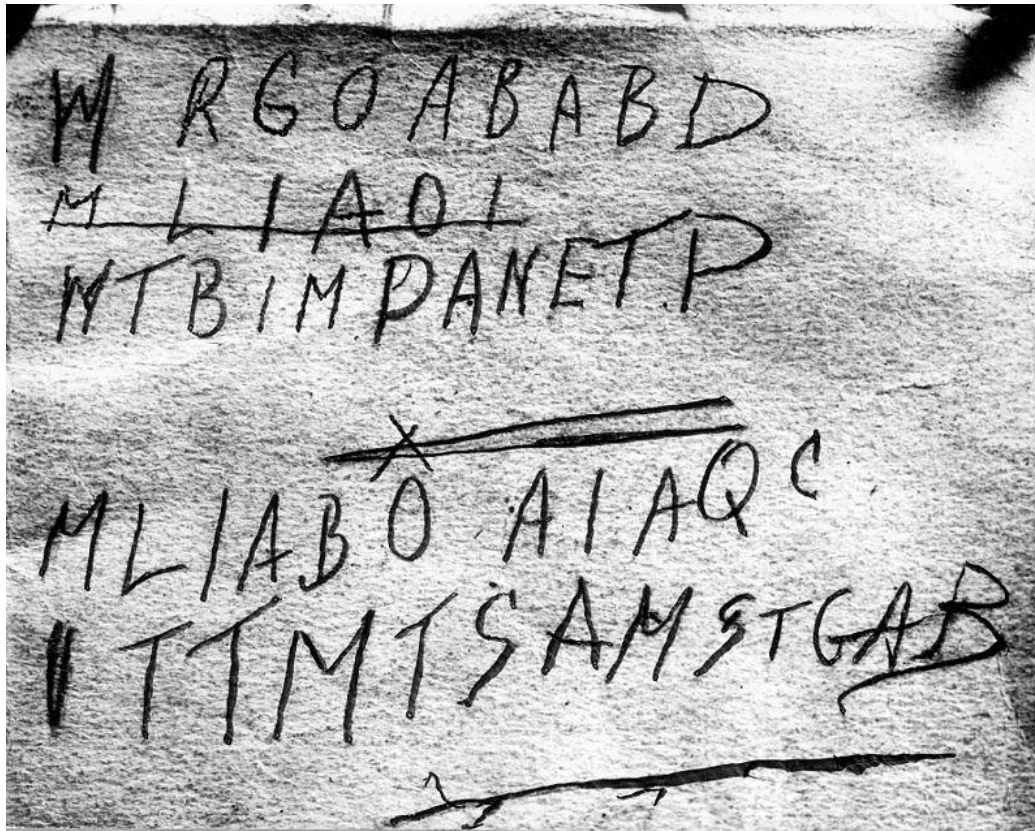 WRGOABABD
MLIAOI
WTBIMPANETP
MLIABOAIAQC
ITTMTSAMSTGAB